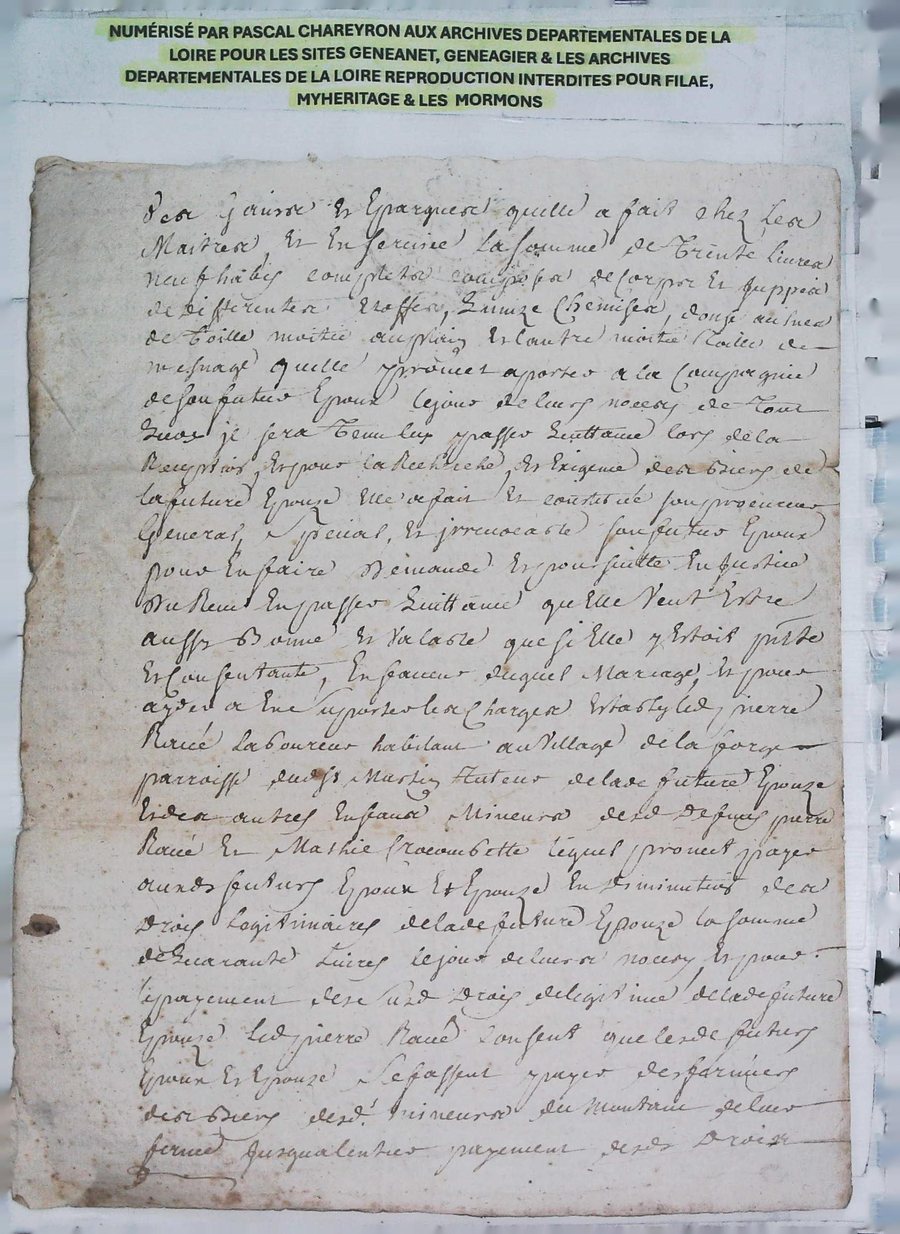 NUMÉRISÉ PAR PASCAL CHAREYRON AUX ARCHIVES DEPARTEMENTALES DE LA
LOIRE POUR LES SITES GENEANET, GENEAGIER & LES ARCHIVES
DEPARTEMENTALES DE LA LOIRE REPRODUCTION INTERDITES POUR FILAE,
MYHERITAGE & LES MORMONS
des gains et Eparques quelle a fait chez Les
Maitres Et En service La somme de Trente Livres
neuf habis complets composes de corps Et juppes
de differentes Etoffes, Quinze Chemises, douse aulnes
de Toille moitié Et lautre moitié Toille de
mesnage quelle promet aporter a la Compagnie
de son futur Epoux le jour de leurs noces de Tout
Quoy je sera Tenu luy passer Quittance lors de la
Reception, Et pour la Recherche, Et Exigence des Biens de
la future Epouze Elle a fait Et constitué son procureur
General, Special, Et jrrevocable son futur Epoux
pour En faire Demande Et poursuitte En justice
Du Reçu En passer Quittance quelle Veut Estre
aussy Bonne Et Valable que si Elle y Estoit pñte
Et Consentante, En faveur duquel Mariage, Et pour
ayder a En suporter les Charges Estably led pierre
Raué Laboureur habitant au Village de la forge
parroisse dudt St Martin Tuteur de lade future Epouze
Et des autres Enfans Mineurs desd Defunts pierre
Raué Et Mathie lequel promet payer
auxds futurs Epoux Et Epouze En Diminution des
Drois Legitimaires de lade future Epouze la somme
de Quarante Livres le jour de leurs noces, Et pour
le payement desd susd Drois de legitime de lade future
Epouze Led pierre Raué Consent que lesds futurs
Epoux Et Epouze Se fassent payer des fermiers
des Biens desd. mineurs du Montant de leur
ferme jusqualentier payement desds Drois